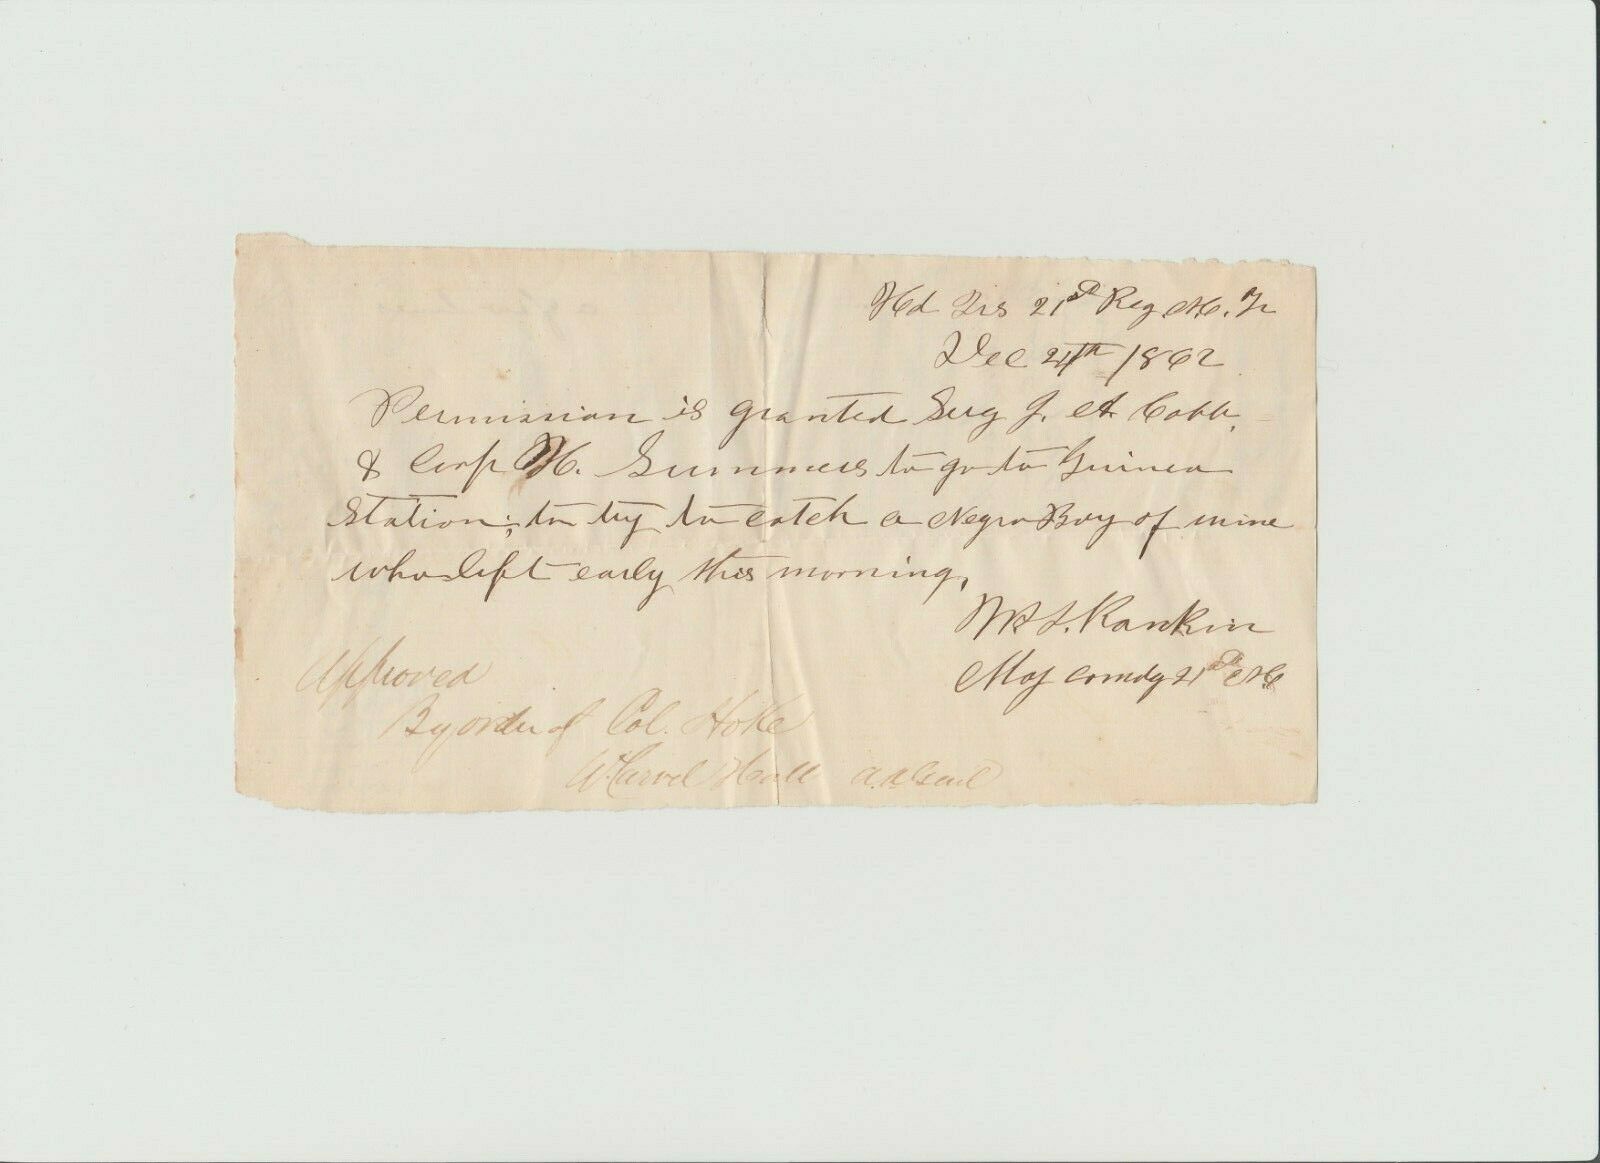 Hd Qrs 21st Reg N.C. Tr
Dec 24th /1862
Permission is granted Serg J. A. Cobb,
& Corp H. Summers to go to Guinea
Station; to try to catch a Negro Boy of mine
who left early this morning,
W. S. Rankin
Maj comdg 21st NC
Approved
By order of Col. Hoke
W. Carvel Hall a.a.Genl